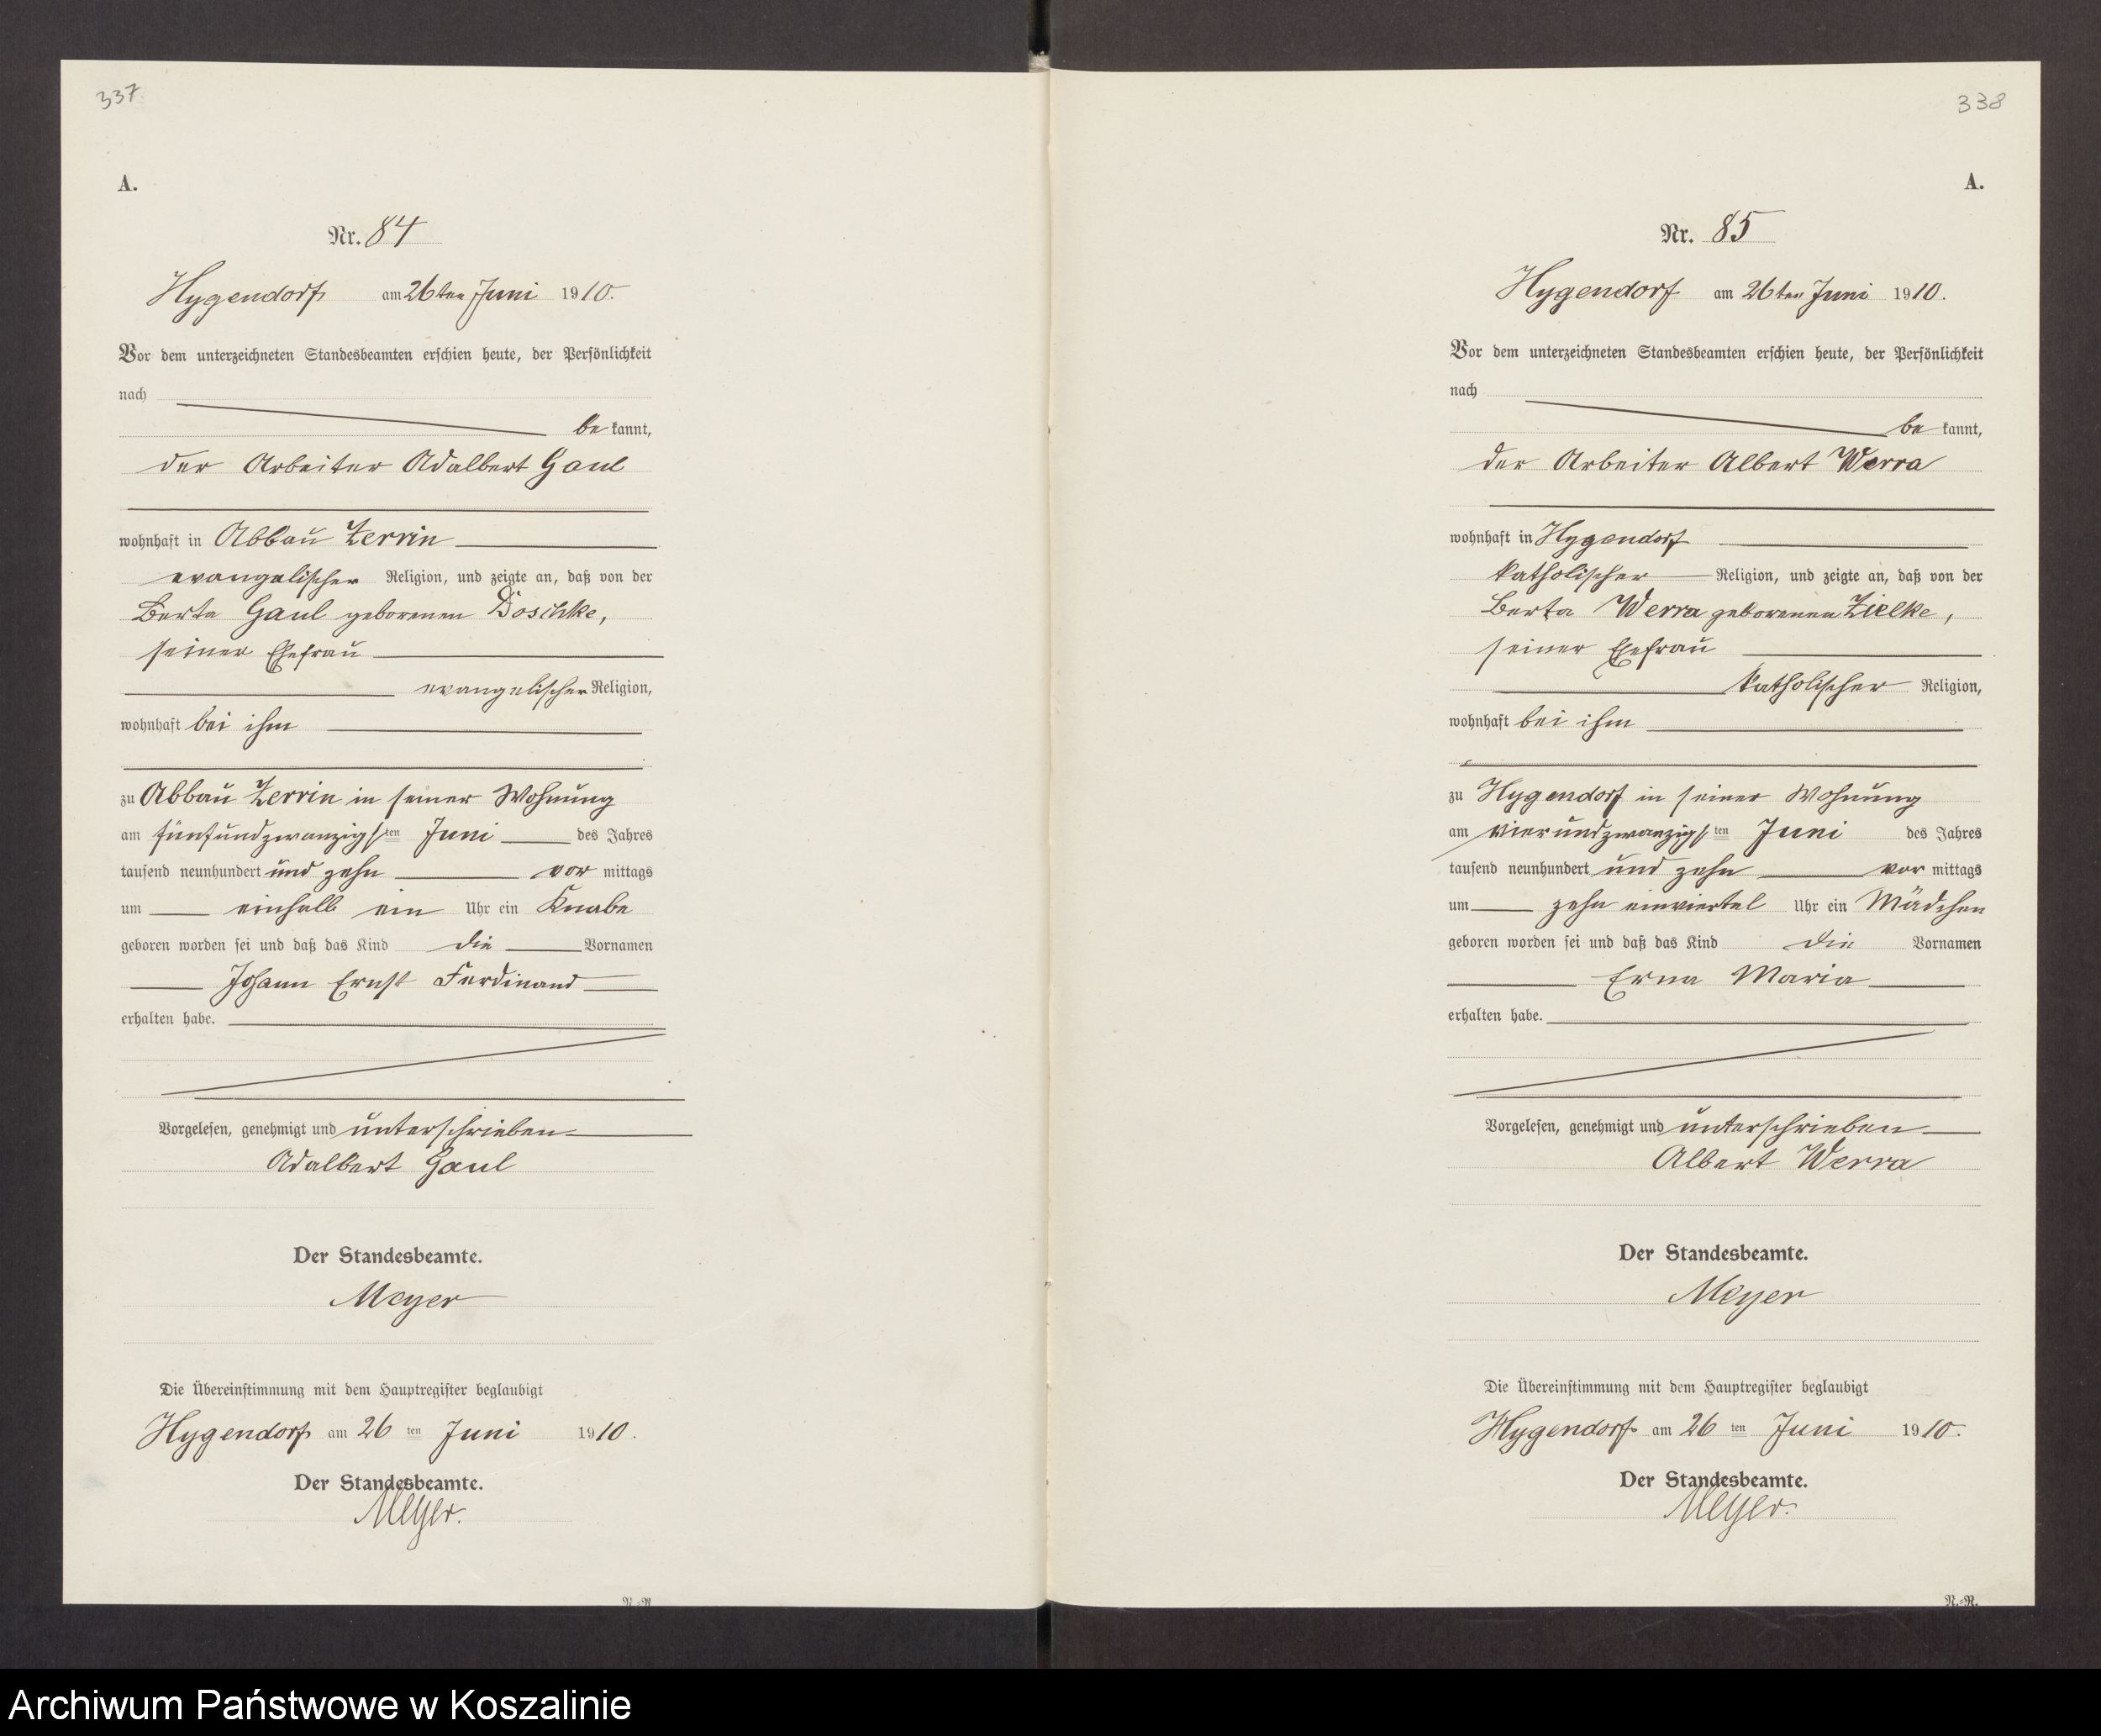 337
A.
Nr. 84
Hygendorf am 26ten Juni 1910.
Vor dem unterzeichneten Standesbeamten erschien heute, der Persönlichkeit
nach
be kannt,
der Arbeiter Adalbert Gaul
wohnhaft in Abbau Zerrin
evangelischer Religion, und zeigte an, daß von der
Berta Gaul geborenen Doschke,
seiner Ehefrau
evangelischer Religion,
wohnhaft bei ihm
zu Abbau Zerrin in seiner Wohnung
am fünfundzwanzigsten Juni des Jahres
tausend neunhundert und zehn vor mittags
um einhalb ein Uhr ein Knabe
geboren worden sei und daß das Kind die Vornamen
Johann Ernst Ferdinand
erhalten habe.
Vorgelesen, genehmigt und unterschrieben
Adalbert Gaul
Der Standesbeamte.
Meyer
Die Übereinstimmung mit dem Hauptregister beglaubigt
Hygendorf am 26 ten Juni 1910.
Der Standesbeamte.
Meyer.
338
A.
Nr. 85
Hygendorf am 26ten Juni 1910.
Vor dem unterzeichneten Standesbeamten erschien heute, der Persönlichkeit
nach
be kannt,
der Arbeiter Albert Werra
wohnhaft in Hygendorf
katholischer Religion, und zeigte an, daß von der
Berta Werra geborenen Zielke,
seiner Ehefrau
katholischer Religion,
wohnhaft bei ihm
zu Hygendorf in seiner Wohnung
am vierundzwanzigsten Juni des Jahres
tausend neunhundert und zehn vor mittags
um zehn einviertel Uhr ein Mädchen
geboren worden sei und daß das Kind die Vornamen
Erna Maria
erhalten habe.
Vorgelesen, genehmigt und unterschrieben
Albert Werra
Der Standesbeamte.
Meyer
Die Übereinstimmung mit dem Hauptregister beglaubigt
Hygendorf am 26 ten Juni 1910.
Der Standesbeamte.
Meyer.
N.-R.
Archiwum Państwowe w Koszalinie